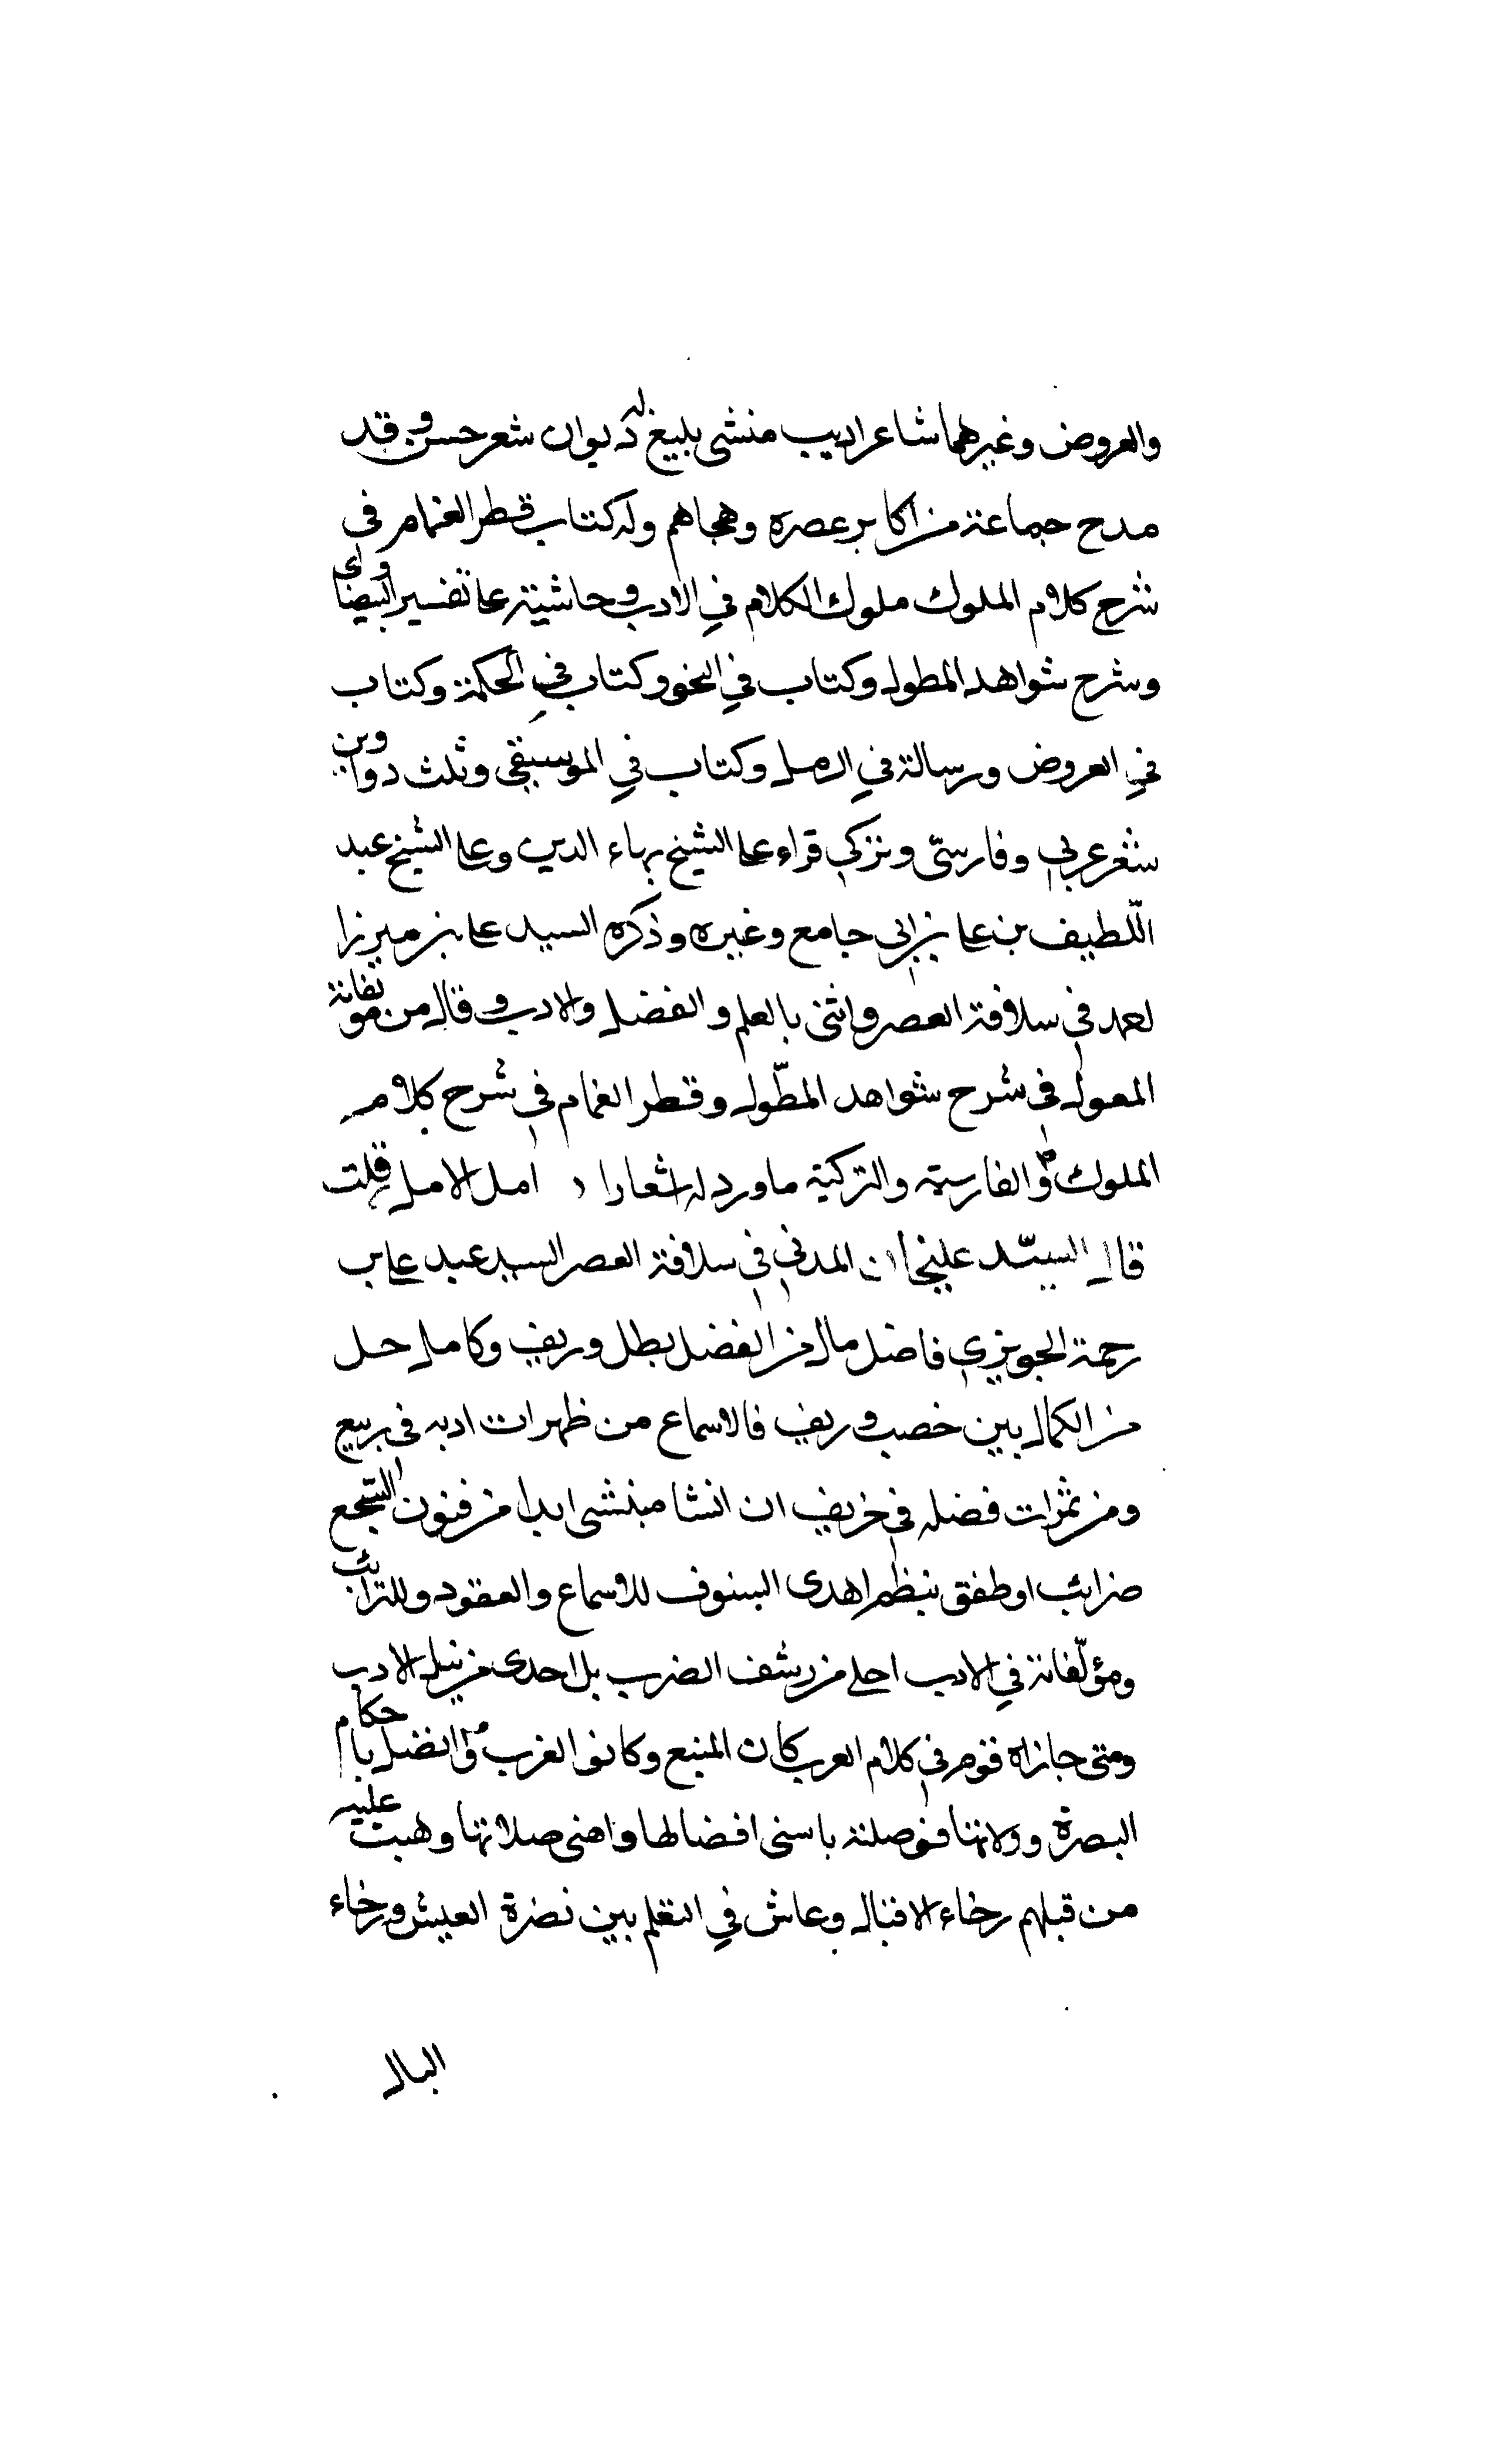 والعروض وغيرهما شاعر اديب منشى بليغ له ديوان شعر حسن وقد
مدح جماعة من اكابر عصره وهجاهم وله كتاب قطر الغمام في
شرح كلام الملوك ملوك الكلام في الادب وحاشية على تفسير البيضاوى
وشرح شواهد المطول وكتاب في النحو وكتاب في الحكمة وكتاب
في العروض ورسالة في الرمل وكتاب في الموسيقى وثلث دواوين
شعر عربي وفارسيّ وتركي قراء على الشيخ بهاء الدين وعلى الشيخ عبد
اللّطيف بن على بن ابى جامع وغيره وذكره السيد على بن ميرزا
احمد في سلافة العصر واثنى بالعلم والفضل والادب وقال من مؤلفاته
المعول في شرح شواهد المطّول وقطر الغمام في شرح كلام
الملوك والفارسية والتركية ما ورد له اشعارا امل الامل قلت
قال السيّد عليخان المدني في سلافة العصر السيد عبد على بن
رحمة الحويزي فاضل مال من الفضل بظل وريف وكامل حل
من الكمال بين خصب وريف فالاسماع من ظهرات ادبه في ربيع
ومن ثمرات فضله في خريف ان انشا منشى ابدا من فنون السّجع
ضرائب او طفق ينظم اهدى الشنوف للاسماع والعقود وللترائب
ومؤلّفاته في الادب احلى من رشف الضرب بل احدى من نيل الادب
ومتى جازاه قوم في كلام العرب كان المنبع وكانوا الغرب واتصل بحكام
البصرة وولاتها فوصلته باسنى افضالها واهنى صلاتها وهبت عليه
من قبلهم رخاء الاقبال وعاش في النقلم بين نضرة العيش ورخاء
البال